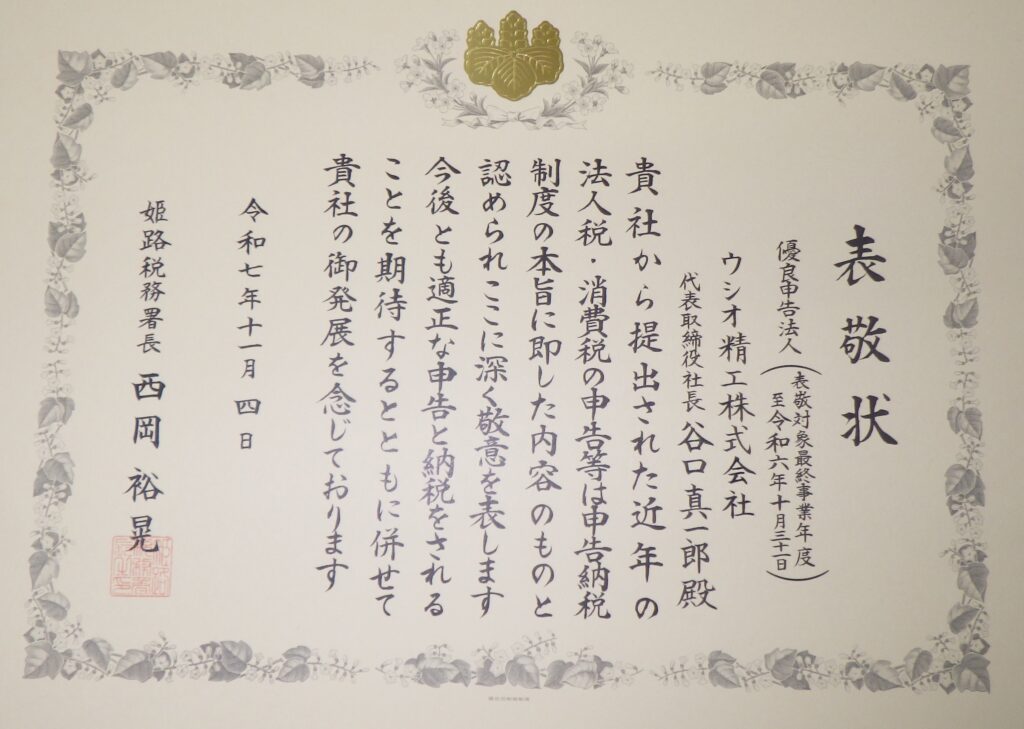 表敬状
優良申告法人(表敬対象最終事業年度
至令和六年十月三十一日)
ウシオ精工株式会社
代表取締役社長 谷口真一郎殿
貴社から提出された近年の
法人税・消費税の申告等は申告納税
制度の本旨に即した内容のものと
認められここに深く敬意を表します
今後とも適正な申告と納税をされる
ことを期待するとともに併せて
貴社の御発展を念じております
令和七年十一月 四 日
姫路税務署長 西岡裕晃